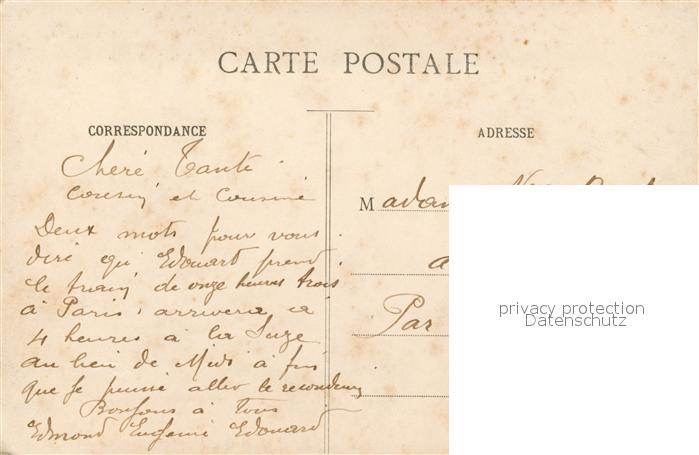 CARTE POSTALE
CORRESPONDANCE
ADRESSE
Cheré Tante
Cousin et Cousine
Deux mots pour vous
diré qui Edouart prend
le train de onze heures trois
à Paris arrivera a
4 heures à la Suze
au lieu de Midi à fin
que je puisse aller le reconduire
Bonjour à tous
Edmond Eugénie Edouard
Madam
a
Par
privacy protection
Datenschutz